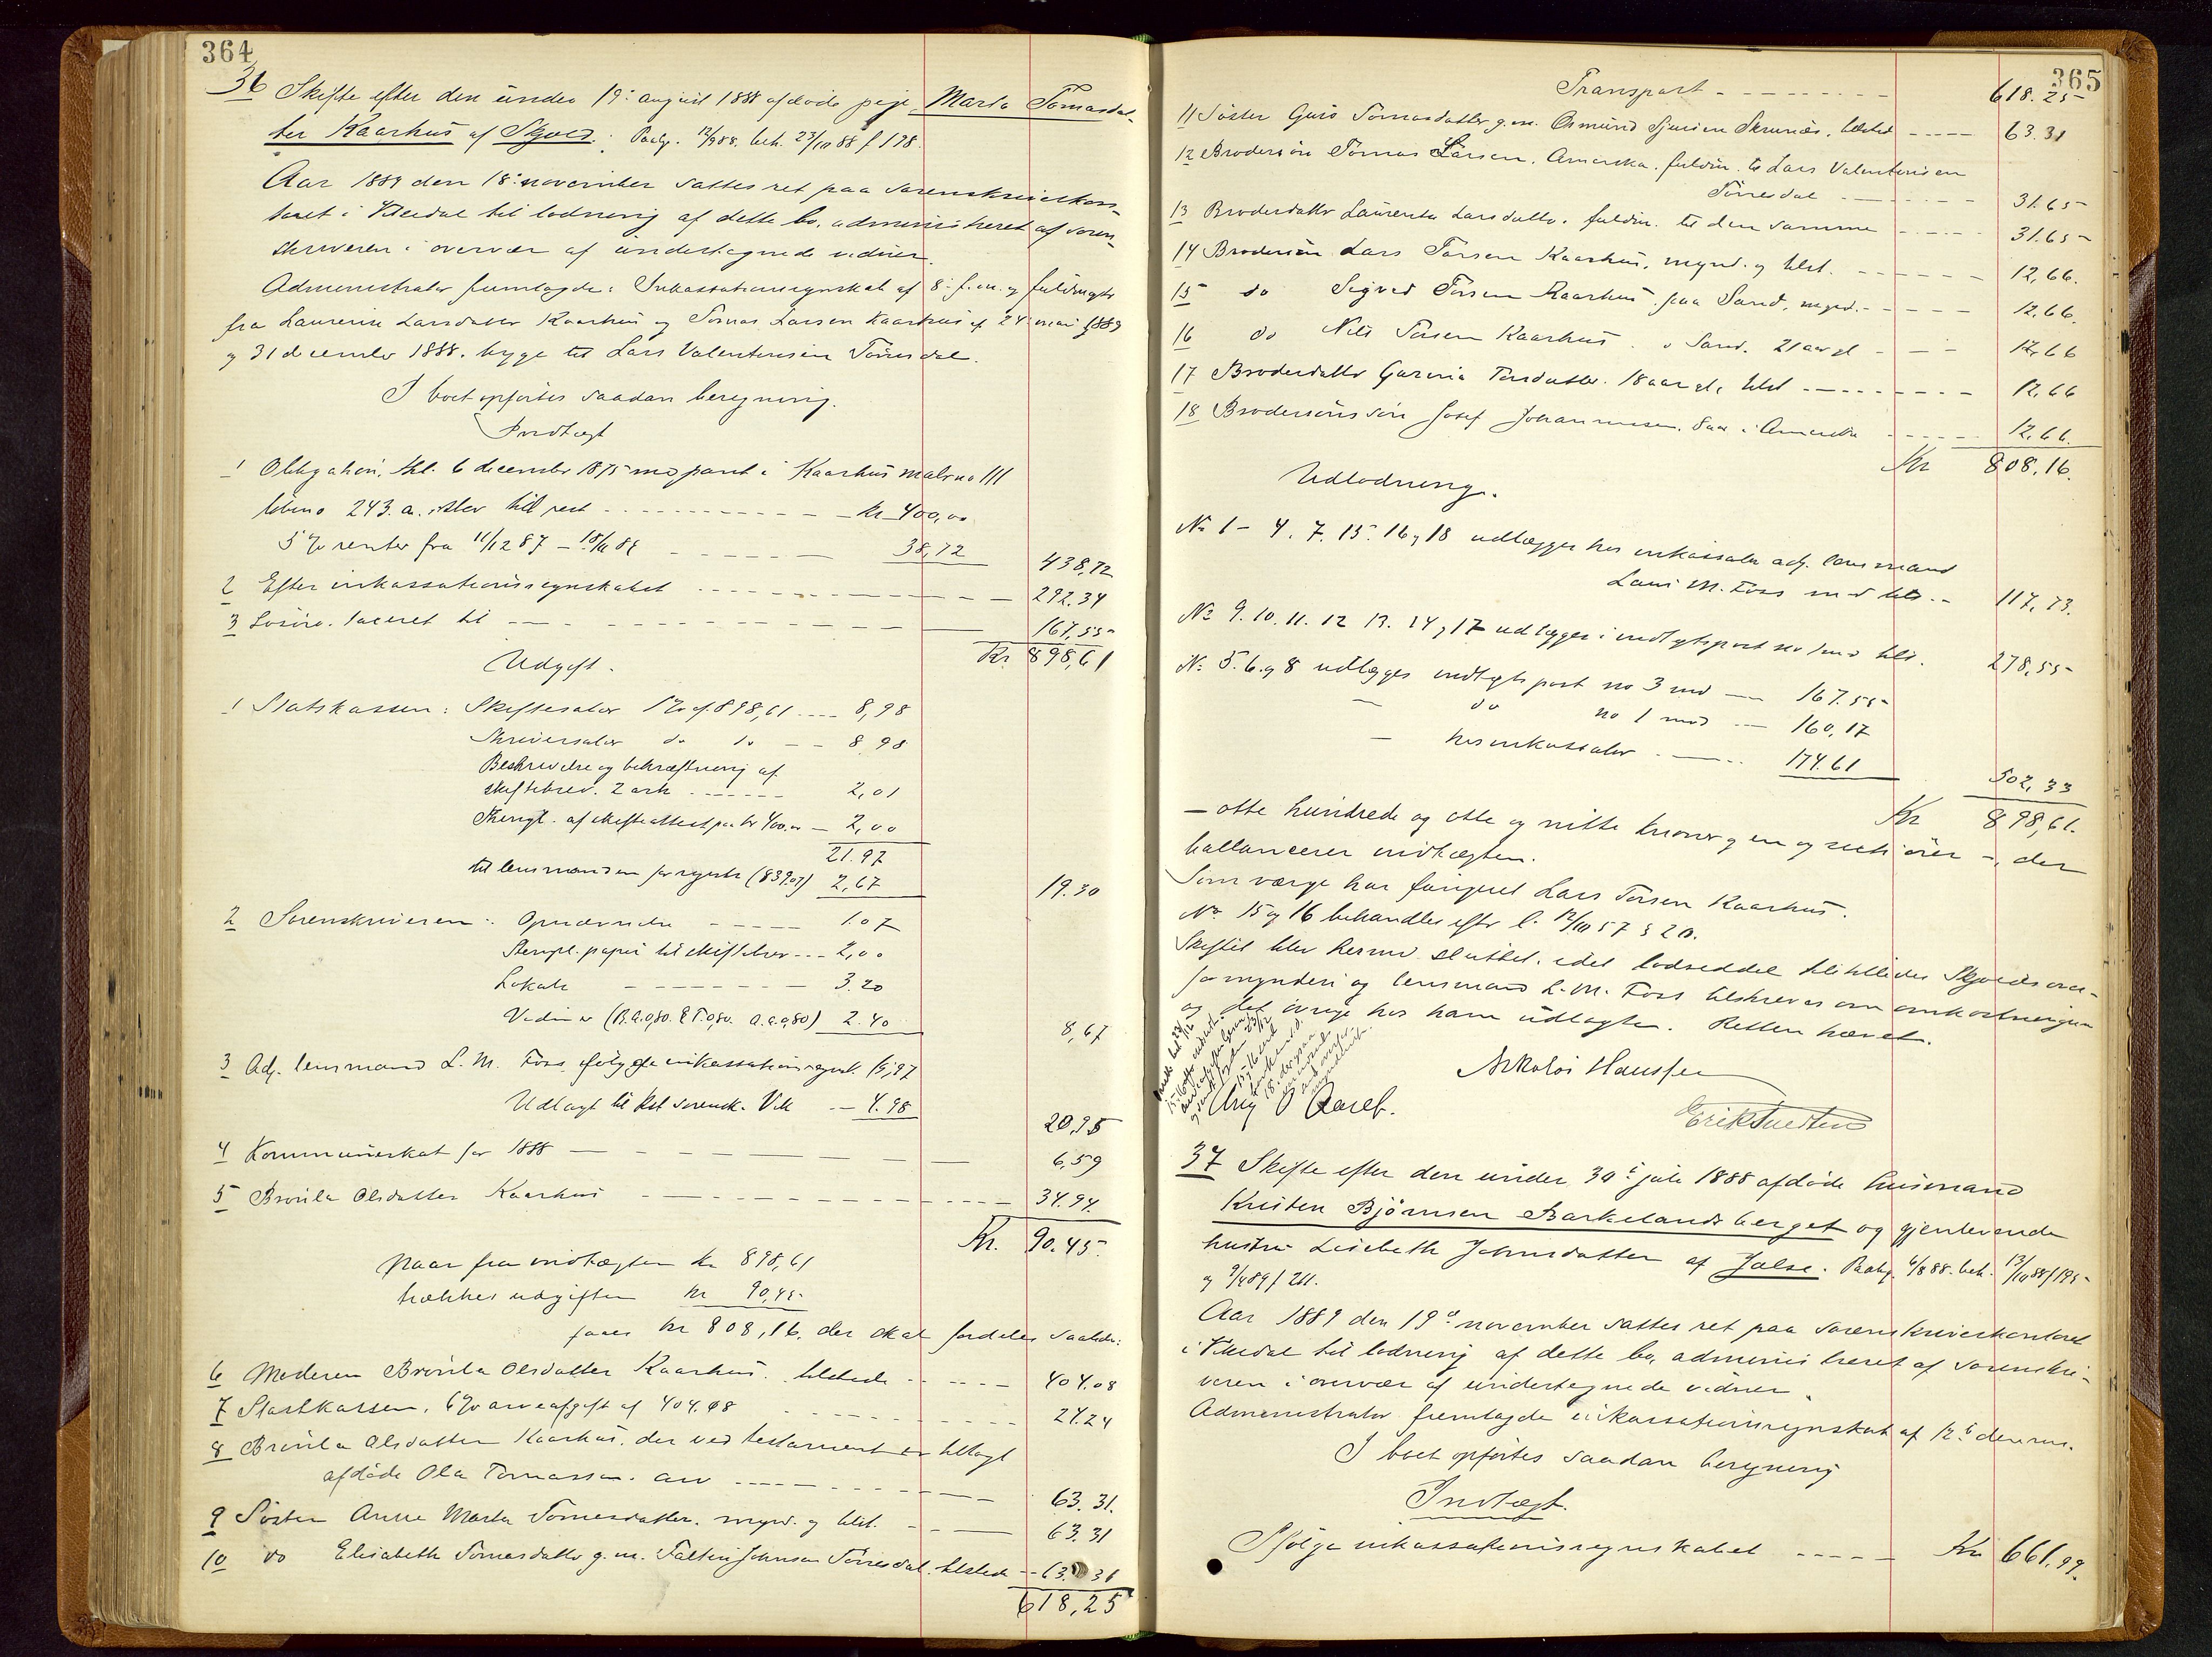 364
36 Skifte efter den under 19: august 1888 afdøde pige Marta Tomasdat-
ter Kaarhus af Skjold. Paabg. 12/9 88. beh. 23/10 88 f 198.
Aar 1889 den 18: november sattes ret paa sorenskriverkon-
toret i Vikedal til lodning af dette bo, administreret af soren-
skriveren i overvær af undertegnede vidner.
Administrator fremlagde: Inkassationsregnskab af 8: f.m. og fuldmagter
fra Laurense Larsdatter Kaarhus og Tomas Larsen Kaarhus af 24 mai 1889
og 31 december 1888. begge til Lars Valentinsen Tørresdal.
I boet opførtes saadan beregning.
Indtægt
1 Obligation, thl. 6 december 1875 med pant i Kaarhus matr no 111
løbeno 243. a. stor till rest - - - kr 400,00
5 % renter fra 11/12 87 - 18/11 89 - - - 38,72 438,72
2 Efter inkassationsregnskabet - - - 292.34
3 Løsøre. taxeret til - - - 167,55
Kr. 898,61
Udgift.
1 Statskassen: Skiftesalær 1% af 898,61 .... 8,98
Skriversalær do do - - 8,98
Beskrivelse og bekræftning af
skiftebrev. 2 ark - - - 2,01
Stempl. af skifteattest paa kr 400,00 - 2,00
21.97
til lensmanden for registr (839.07) 2,67 19.30
2 Sorenskriveren: Opnævnelse - - - 1.07
Stempl. papir til skiftebrev - - - 2,00
Lokale - - - 3.20
Vidner (B.A. 0,80. E T. 0,80. A.A. 0,80) 2.40 8,67
3 Adj. lensmand L. M. Foss ifølge inkassationsregnsk 15,97
Udlagt til kst sorensk. Vik - - 4.98 20,95
4 Kommuneskat for 1888 - - - 6,59
5 Brønla Olsdatter Kaarhus - - - 34.94.
Kr. 90.45.
Naar fra indtægten kr 898,61
trækkes udgiften kr 90,45
faaes kr 808,16, der skal fordeles saaledes:
6 Moderen Brønla Olsdatter Kaarhus. tilstede - - - 404.08
7 Statskassen, 6% arveafgift af 404.08 - - - 24.24
8 Brønla Olsdatter Kaarhus, der ved testament er tillagt
afdøde Ola Tomassen. arv - - - 63.31.
9 Søster Anne Marta Tomasdatter. mynd. og tilst. - - - 63.31
10 do Elisabeth Tomasdatter g.m. Faltin Johnsen Tørresdal. tilstede - - 63.31
618,25
365
Transport - - - 618.25
11 Søster Guro Tomasdatter g.m. Osmund Sjursen Skrunæs. tilsted - - - 63.31
12 Brodersøn Tomas Larsen. Amerika. fuldm. til Lars Valentinsen
Tørresdal - - - 31.65
13 Broderdatter Laurense Larsdatter. fuldm. til den samme - - - 31.65
14 Brodersøn Lars Torsen Kaarhus, mynd. og tilst. - - - 12,66.
15 do Sigvad Torsen Kaarhus paa Sand. mynd. - - - 12.66.
16 do Nils Torsen Kaarhus . o Sand. 21 aar gl - - - 12,66
17 Broderdatter Gurina Torsdatter. 18 aar gl, tilst - - - 12,66
18 Brodersøns søn Josef Johannesen. 8 aar i Amerika - - - 12,66.
Kr 808,16.
Udlodning.
No 1 - 4. 7. 15. 16 og 18 udlægges hos inkassator adj. lensmand
Lars M. Foss med tils. - 117,73.
No 9. 10. 11. 12 13. 14 og 17 udlægges i indtægtspost no 1 med tils. 278,55
No 5. 6. og 8 udlægges indtægts post no 3 med - 167.55
- do no 1 med - - 160,17
- hos inkassator - - - 174.61 502,33
Kr 898,61.
- otte hundrede og otte og nitte kroner og en og seksti øre -, der
ballancerer indtægten.
Som værge har fungeret Lars Torsen Kaarhus.
No 15 og 16 behandles efter l. 12/10 57 § 20.
Skiftet blev hermed sluttet. idet lodseddel tilstilledes Skjolds over-
formynderi og lensmand L. M. Foss tilskrives om omkostninger
og det øvrige hos ham udlagte. Retten hævet.
Nikolai Hanssen
Erik Tuedten
37 Skifte efter den under 30: juli 1888 afdøde husmand
Kristen Bjørnsen Barkelandsberget og gjenlevende
hustru Lisebeth Johnsdatter af Jelse. Paabg. 6/8 88. beh. 13/10 88 f 195
og 9/4 89 f 211.
Aar 1889 den 19d november sattes ret paa sorenskriverkontoret
i Vikedal til lodning af dette bo, administreret af sorenskri-
veren i overvær af undertegnede vidner.
Administrator fremlagde inkassationsregnskab af 12: dennes.
I boet opførtes saadan beregning
Indtægt.
Ifølge inkassationsregnskabet - - - Kr 661,99.